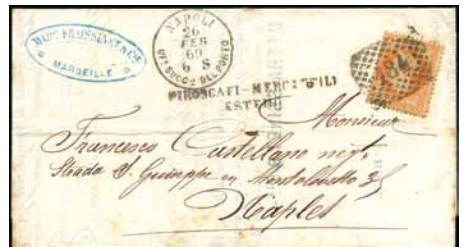 MARC FRAISSINET & Cie
MARSEILLE
NAPOLI
26
FEB
69
6 S
UFF. SUCC. DEL PORTO
PIROSCAFI-MERCANTILI
ESTERI
Monsieur
Francesco Castellano
Strada S. Giuseppe
Naples